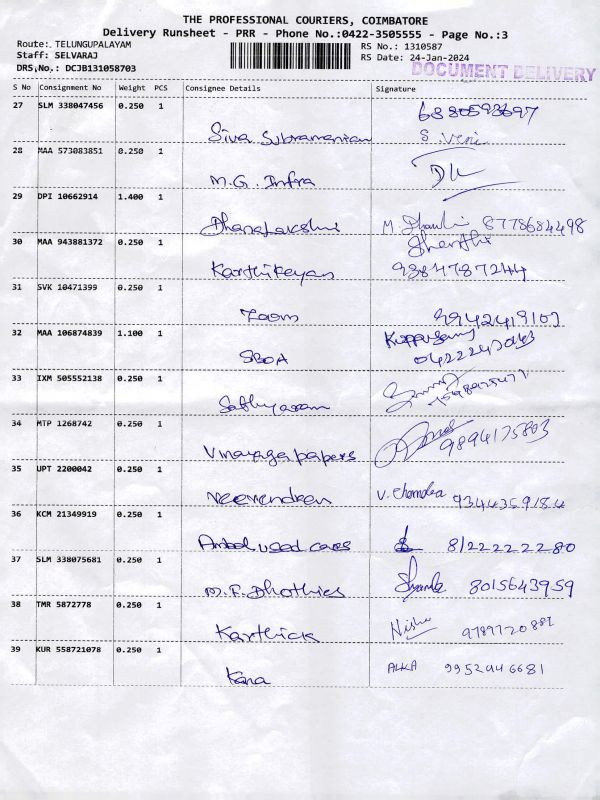 THE PROFESSIONAL COURIERS, COIMBATORE
Delivery Runsheet - PRR - Phone No.:0422-3505555 - Page No.:3
Route: TELUNGUPALAYAM
Staff: SELVARAJ
DRS,No.: DCJB131058703
RS No.: 1310587
RS Date: 24-Jan-2024
DOCUMENT DELIVERY
S No Consignment No Weight PCS Consignee Details Signature
27 SLM 338047456 0.250 1
Siva Subramanian S. Veni
28 MAA 573083851 0.250 1
M.G. Infra
29 DPI 10662914 1.400 1
Dhanalakshmi M. 8778684498
30 MAA 943881372 0.250 1 Shanthi
Karthikeyan 9884787244
31 SVK 10471399 0.250 1
Zoom
32 MAA 106874839 1.100 1 Kuppusamy
SBOA
33 IXM 505552138 0.250 1
Sathyaram
34 MTP 1268742 0.250 1
Vinayaga papers 9894175803
35 UPT 2200042 0.250 1
V. Chandra
36 KCM 21349919 0.250 1
Ambal used cars 8122222280
37 SLM 338075681 0.250 1
M.F. Dhothies 8015643959
38 TMR 5872778 0.250 1
Karthick Nisha
39 KUR 558721078 0.250 1
Kana ALKA 9952946681